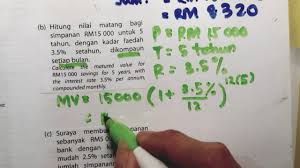 = RM 8320
(b) Hitung nilai matang bagi
simpanan RM15 000 untuk 5
tahun, dengan kadar faedah
3.5% setahun, dikompaun
setiap bulan.
Calculate the matured value for
RM15 000 savings for 5 years, with
the interest rate 3.5% per annum,
compounded monthly.
P = RM 15 000
T = 5 tahun
R = 3.5%
MV = 15000 (1 + 3.5%/12)^12(5)
=
(c) Suraya memb
sebanyak RM5
bank dengan
mudah 2.5%